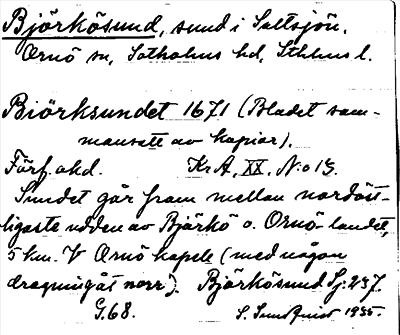 Björkösund, sund i Saltsjön.
Ornö sn, Sotholms hd, Sthlms l.
Biörksundet 1671 (Bladet sam-
mansatt av kopior).
Förf. okd. KrA, XX, N:o 13.
Sundet går fram mellan nordöst-
ligaste udden av Björkö o. Ornö-landet,
5 km. V Ornö kapell (med någon
dragning åt norr). Björkösund Sj. 237.
G.68. S. Sundquist 1935.